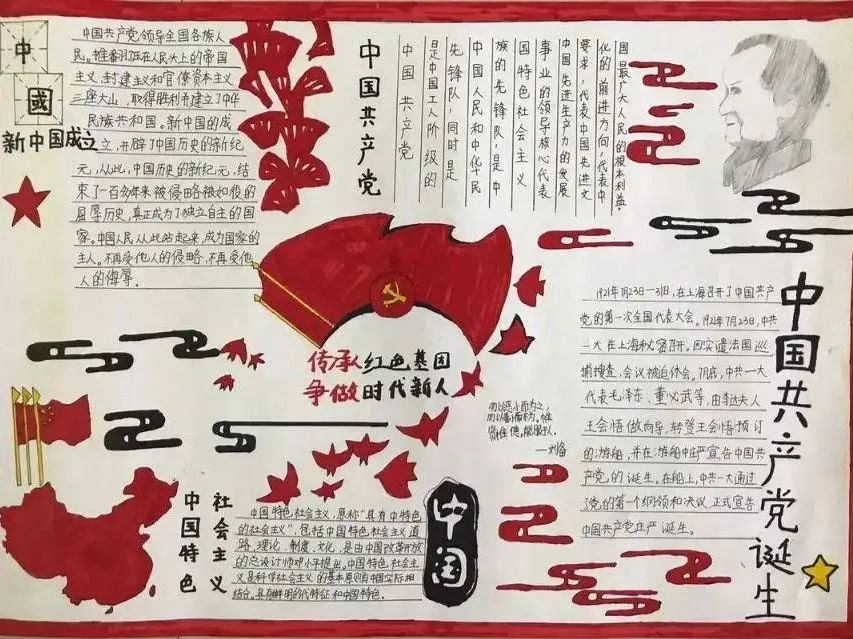 中
國
新中国成立
中国共产党领导全国各族人
民。推翻压在人民头上的帝国
主义,封建主义和官僚资本主义
三座大山,取得胜利并建立了中华
民族共和国。新中国的成
立,开辟了中国历史的新纪
元,从此,中国历史的新纪元,结
束了一百多年来被侵略被奴役的
屈辱历史,真正成为了独立自主的国
家。中国人民从此站起来,成为国家的
主人。不再受他人的侵略,不再受他
人的侮辱。
中国共产党
中国共产党
是中国工人阶级的
先锋队,同时是
中国人民和中华民
族的先锋队,是中
国特色社会主义
事业的领导核心代表
中国先进生产力的发展
要求,代表中国先进文
化的前进方向,代表中
国最广大人民的根本利益.
传承红色基因
争做时代新人
勿以恶小而为之,
勿以善小而不为。惟
贤惟德,能服于人.
—刘备
中国共产党诞生
1921年7月23日—31日,在上海召开了中国共产
党的第一次全国代表大会。1921年7月23日,中共
一大在上海秘密召开。因突遭法国巡
捕搜查,会议被迫休会。7月底,中共一大
代表毛泽东、董必武等,由李达夫人
王会悟做向导,转登王会悟预订
的游船,并在游船中庄严宣告中国共
产党的诞生。在船上,中共一大通过
了党的第一个纲领和决议,正式宣告
中国共产党庄严诞生。
社会主义
中国特色
中国特色社会主义,原称"具有中特色
的社会主义",包括中国特色社会主义道
路、理论、制度、文化,是由中国改革开放
的总设计师邓小平提出。中国特色社会主
义是科学社会主义的基本原则与中国实际相
结合。具有鲜明的时代特征和中国特色。
中国